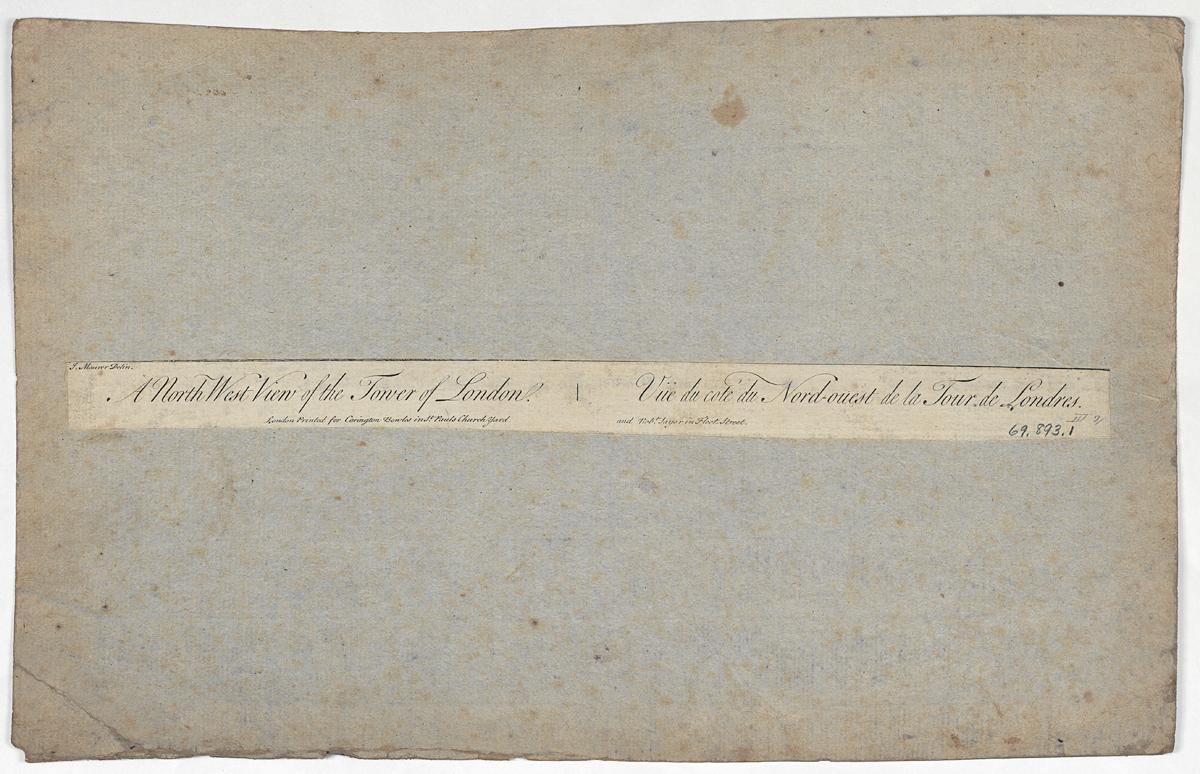 J. Maurer Delin.
A North West View of the Tower of London. | Vüe du coté du Nord-ouest de la Tour de Londres.
London Printed for Carington Bowles in St. Pauls Church Yard and Robt. Sayer in Fleet Street.
69.893.1